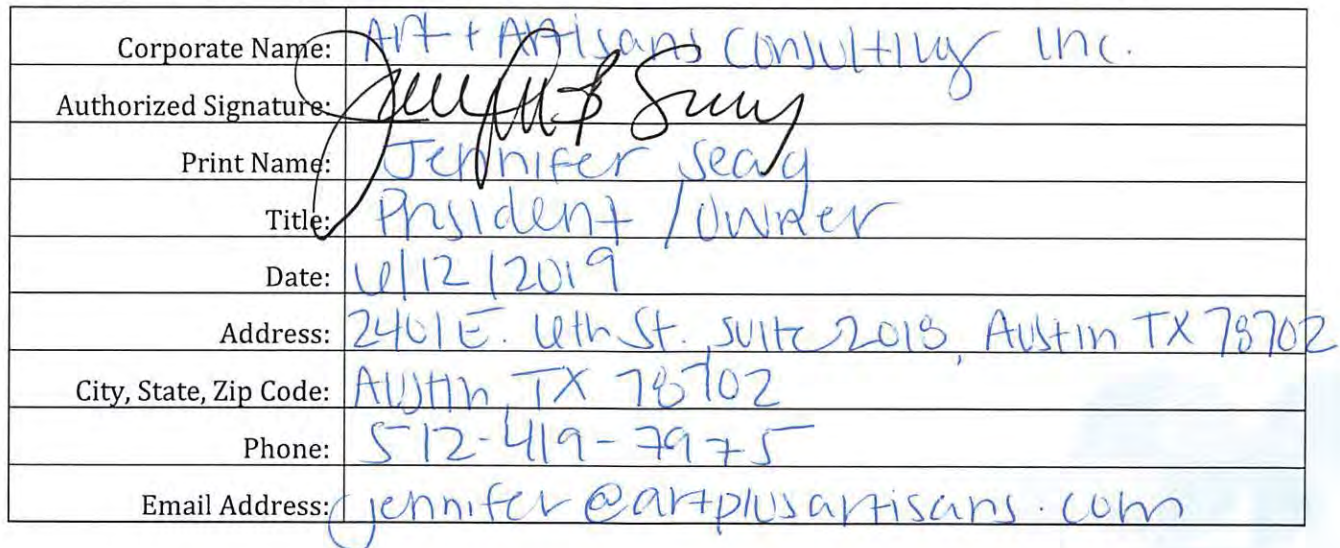 Corporate Name: Art + Artisans Consulting Inc.
Authorized Signature:
Print Name: Jennifer Seay
Title: President / Owner
Date: 6/12/2019
Address: 2401 E. 6th St. Suite 2018, Austin TX 78702
City, State, Zip Code: Austin, TX 78702
Phone: 512-419-7975
Email Address: jennifer@artplusartisans.com